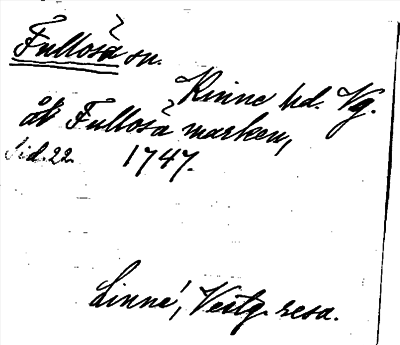 Fullosa sn.
Kinne hd. Vg.
åt Fullosa marken,
Sid. 22. 1747.
Linné, Vestg. resa.